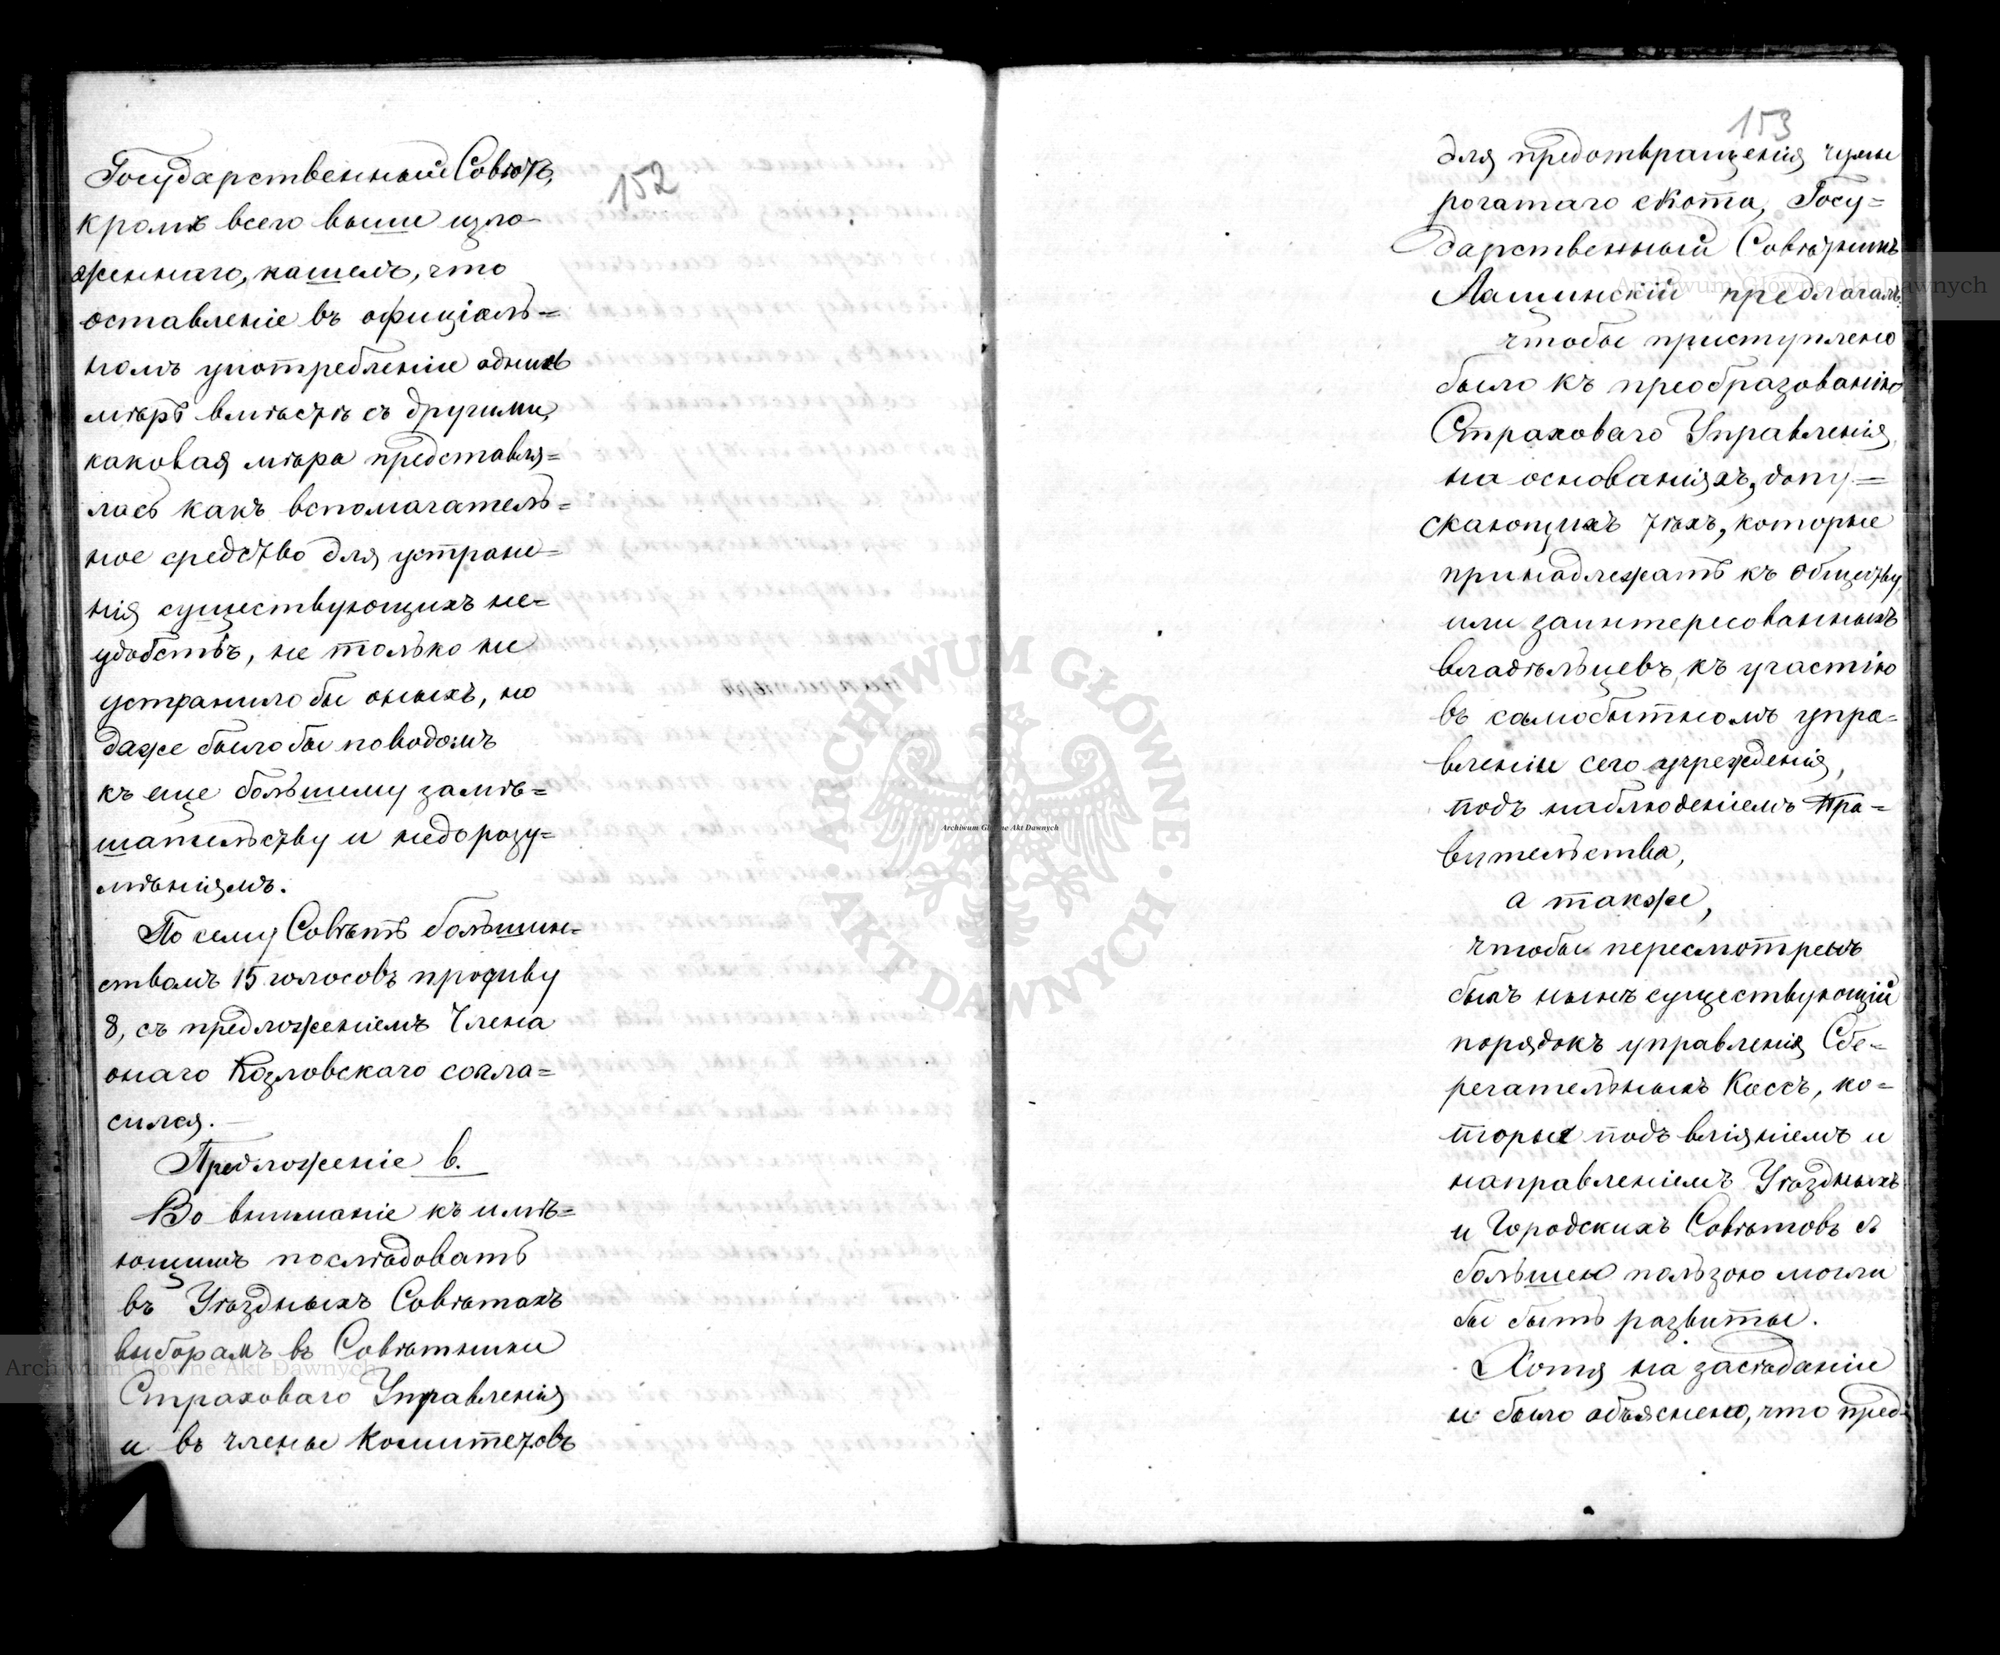 152
Государственный Совѣтъ,
кромѣ всего выше изло-
женнаго, нашелъ, что
оставленіе въ офиціаль=
номъ употребленіи однихъ
мѣръ вмѣстѣ съ другими,
каковая мѣра представля=
лась какъ вспомагатель=
ное средство для устране=
нія существующихъ не=
удобствъ, не только не
устранило бы оныхъ, но
даже было бы поводомъ
къ еще большему замѣ=
шательству и недоразу=
мѣніямъ.
По сему Совѣтъ большин=
ствомъ 15 голосовъ противу
8, съ предложеніемъ Члена
онаго Козловскаго согла=
сился.—
Предложеніе в.
Во вниманіе къ имѣ=
ющимъ послѣдовать
въ Уѣздныхъ Совѣтахъ
выборамъ въ Совѣтники
Страховаго Управленія
и въ члены Комитетовъ
153
для предотвращенія чумы
рогатаго скота, Госу=
дарственный Совѣтникъ
Лащинскій предлагалъ,
чтобы приступлено
было къ преобразованію
Страховаго Управленія,
на основаніяхъ, допу=
скающихъ тѣхъ, которые
принадлежатъ къ обществу
или заинтересованныхъ
владѣльцевъ, къ участію
въ самобытномъ упра=
вленіи сего учрежденія,
подъ наблюденіемъ Пра=
вительства,
а также,
чтобы пересмотренъ
былъ нынѣ существующій
порядокъ управленія Сбе=
регательныхъ Кассъ, ко=
торые подъ вліяніемъ и
направленіемъ Уѣздныхъ
и Городскихъ Совѣтовъ съ
большею пользою могли
бы быть развиты.
Хотя на засѣданіи
и было объяснено, что пред-
Archiwum Główne Akt Dawnych
ARCHIWUM GŁÓWNE · AKT DAWNYCH ·
Archiwum Główne Akt Dawnych
Archiwum Główne Akt Dawnych